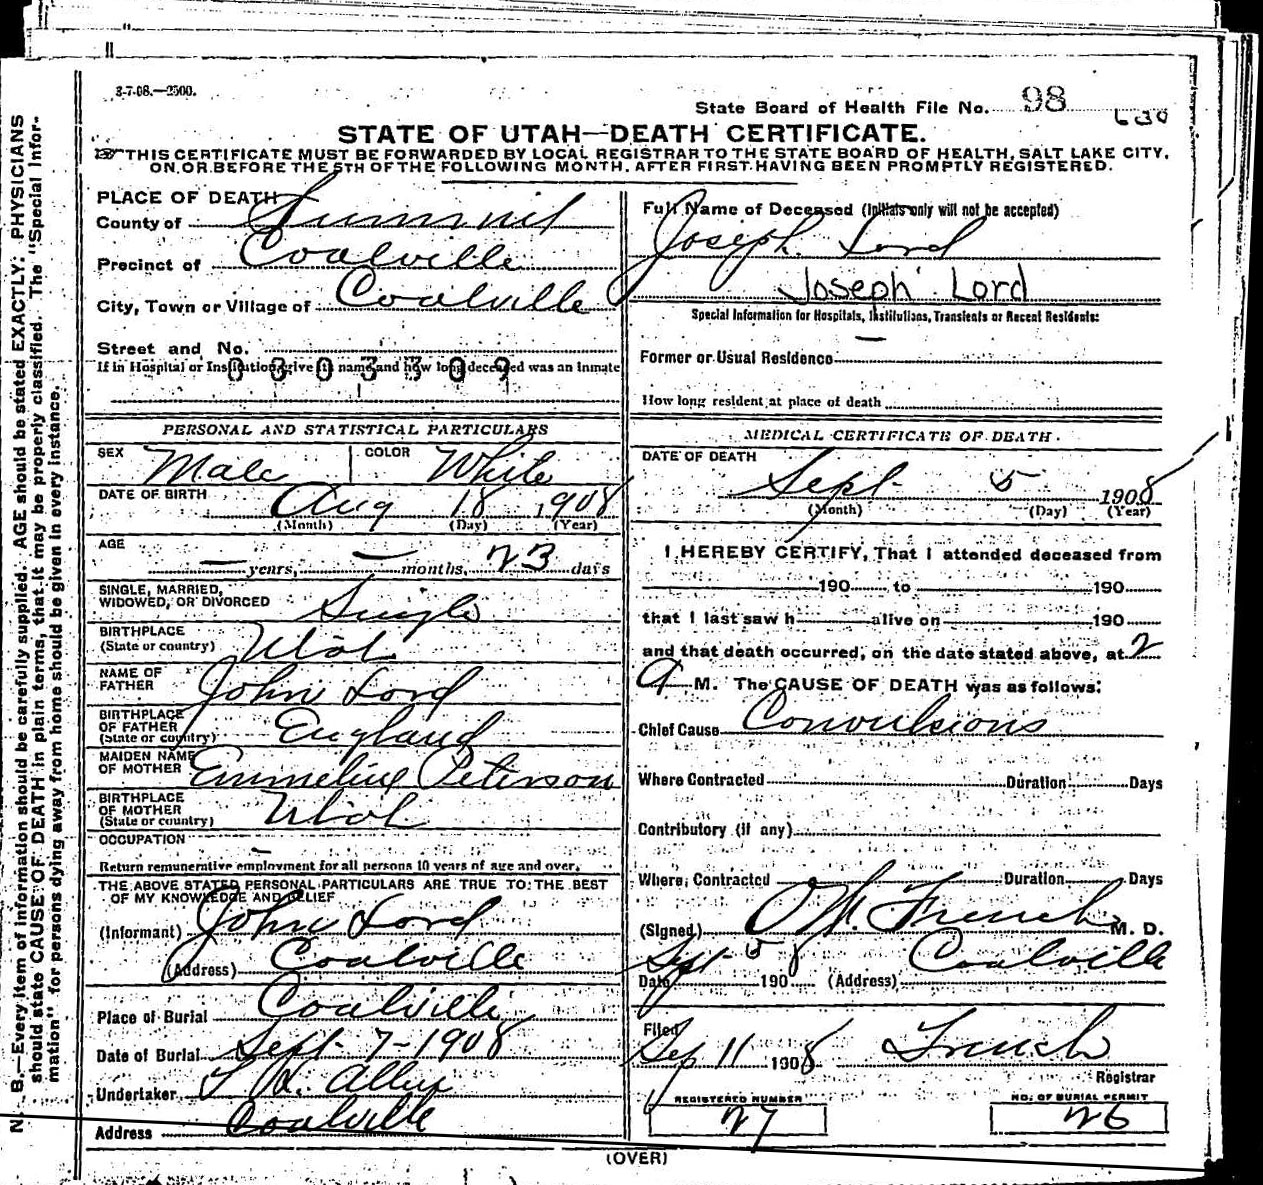 3-7-08.—2500.
State Board of Health File No. 98
STATE OF UTAH—DEATH CERTIFICATE.
THIS CERTIFICATE MUST BE FORWARDED BY LOCAL REGISTRAR TO THE STATE BOARD OF HEALTH, SALT LAKE CITY,
ON OR BEFORE THE 5TH OF THE FOLLOWING MONTH, AFTER FIRST HAVING BEEN PROMPTLY REGISTERED.
N. B.—Every item of information should be carefully supplied. AGE should be stated EXACTLY. PHYSICIANS
should state CAUSE OF DEATH in plain terms, that it may be properly classified. The "Special Infor-
mation" for persons dying away from home should be given in every instance.
PLACE OF DEATH
County of Summit
Precinct of Coalville
City, Town or Village of Coalville
Street and No.
If in Hospital or Institution, give its name and how long deceased was an inmate
0303309
Full Name of Deceased (Initials only will not be accepted)
Joseph Lord
Joseph Lord
Special Information for Hospitals, Institutions, Transients or Recent Residents:
Former or Usual Residence —
How long resident at place of death
PERSONAL AND STATISTICAL PARTICULARS
SEX Male COLOR White
DATE OF BIRTH Aug 18, 1908
(Month) (Day) (Year)
AGE
— years, — months, 23 days
SINGLE, MARRIED,
WIDOWED, OR DIVORCED Single
BIRTHPLACE
(State or country) Utah
NAME OF
FATHER John Lord
BIRTHPLACE
OF FATHER
(State or country) England
MAIDEN NAME
OF MOTHER Emmeline Peterson
BIRTHPLACE
OF MOTHER
(State or country) Utah
OCCUPATION —
Return remunerative employment for all persons 10 years of age and over.
THE ABOVE STATED PERSONAL PARTICULARS ARE TRUE TO THE BEST
OF MY KNOWLEDGE AND BELIEF
(Informant) John Lord
(Address) Coalville
Place of Burial Coalville
Date of Burial Sept. 7-1908
Undertaker
Address Coalville
MEDICAL CERTIFICATE OF DEATH.
DATE OF DEATH
Sept. 5 1908
(Month) (Day) (Year)
I HEREBY CERTIFY, That I attended deceased from
190 to 190
that I last saw h alive on 190
and that death occurred, on the date stated above, at 2
a M. The CAUSE OF DEATH was as follows:
Chief Cause Convulsions
Where Contracted Duration Days
Contributory (if any)
Where Contracted Duration Days
(Signed) French M. D.
Date Sept 5 1908 (Address) Coalville
Filed
Sep 11 1908 French
Registrar
REGISTERED NUMBER
27
NO. OF BURIAL PERMIT
26
(OVER)